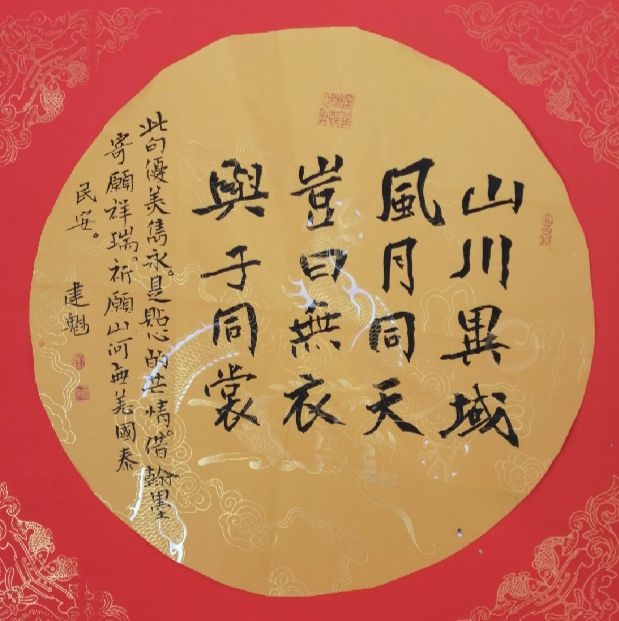 山川異域
風月同天
豈曰無衣
與子同裳
此句優美雋永。是貼心的共情。借翰墨
寄願祥瑞。祈願山河無恙國泰
民安。
建魁